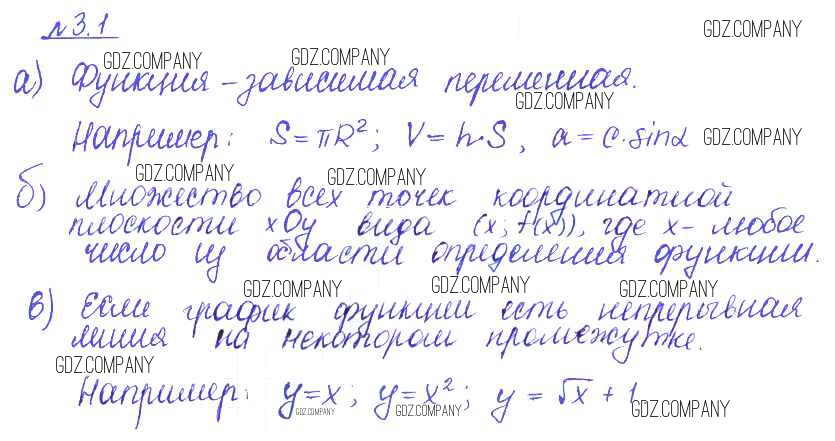 №3.1
а) Функция – зависимая переменная.
Например: S = πR²; V = h·S, a = c·sinα
б) Множество всех точек координатной
плоскости xOy вида (x; f(x)), где x – любое
число из области определения функции.
в) Если график функции есть непрерывная
линия на некотором промежутке.
Например: y = x; y = x²; y = √x + 1
GDZ.COMPANY
GDZ.COMPANY
GDZ.COMPANY
GDZ.COMPANY
GDZ.COMPANY
GDZ.COMPANY
GDZ.COMPANY
GDZ.COMPANY
GDZ.COMPANY
GDZ.COMPANY
GDZ.COMPANY
GDZ.COMPANY
GDZ.COMPANY
GDZ.COMPANY